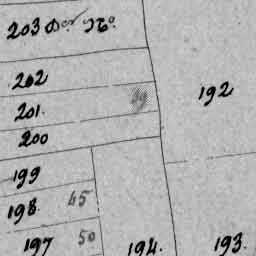 203
202
192
201.
200
199
198. 45
197 50
194. 193.